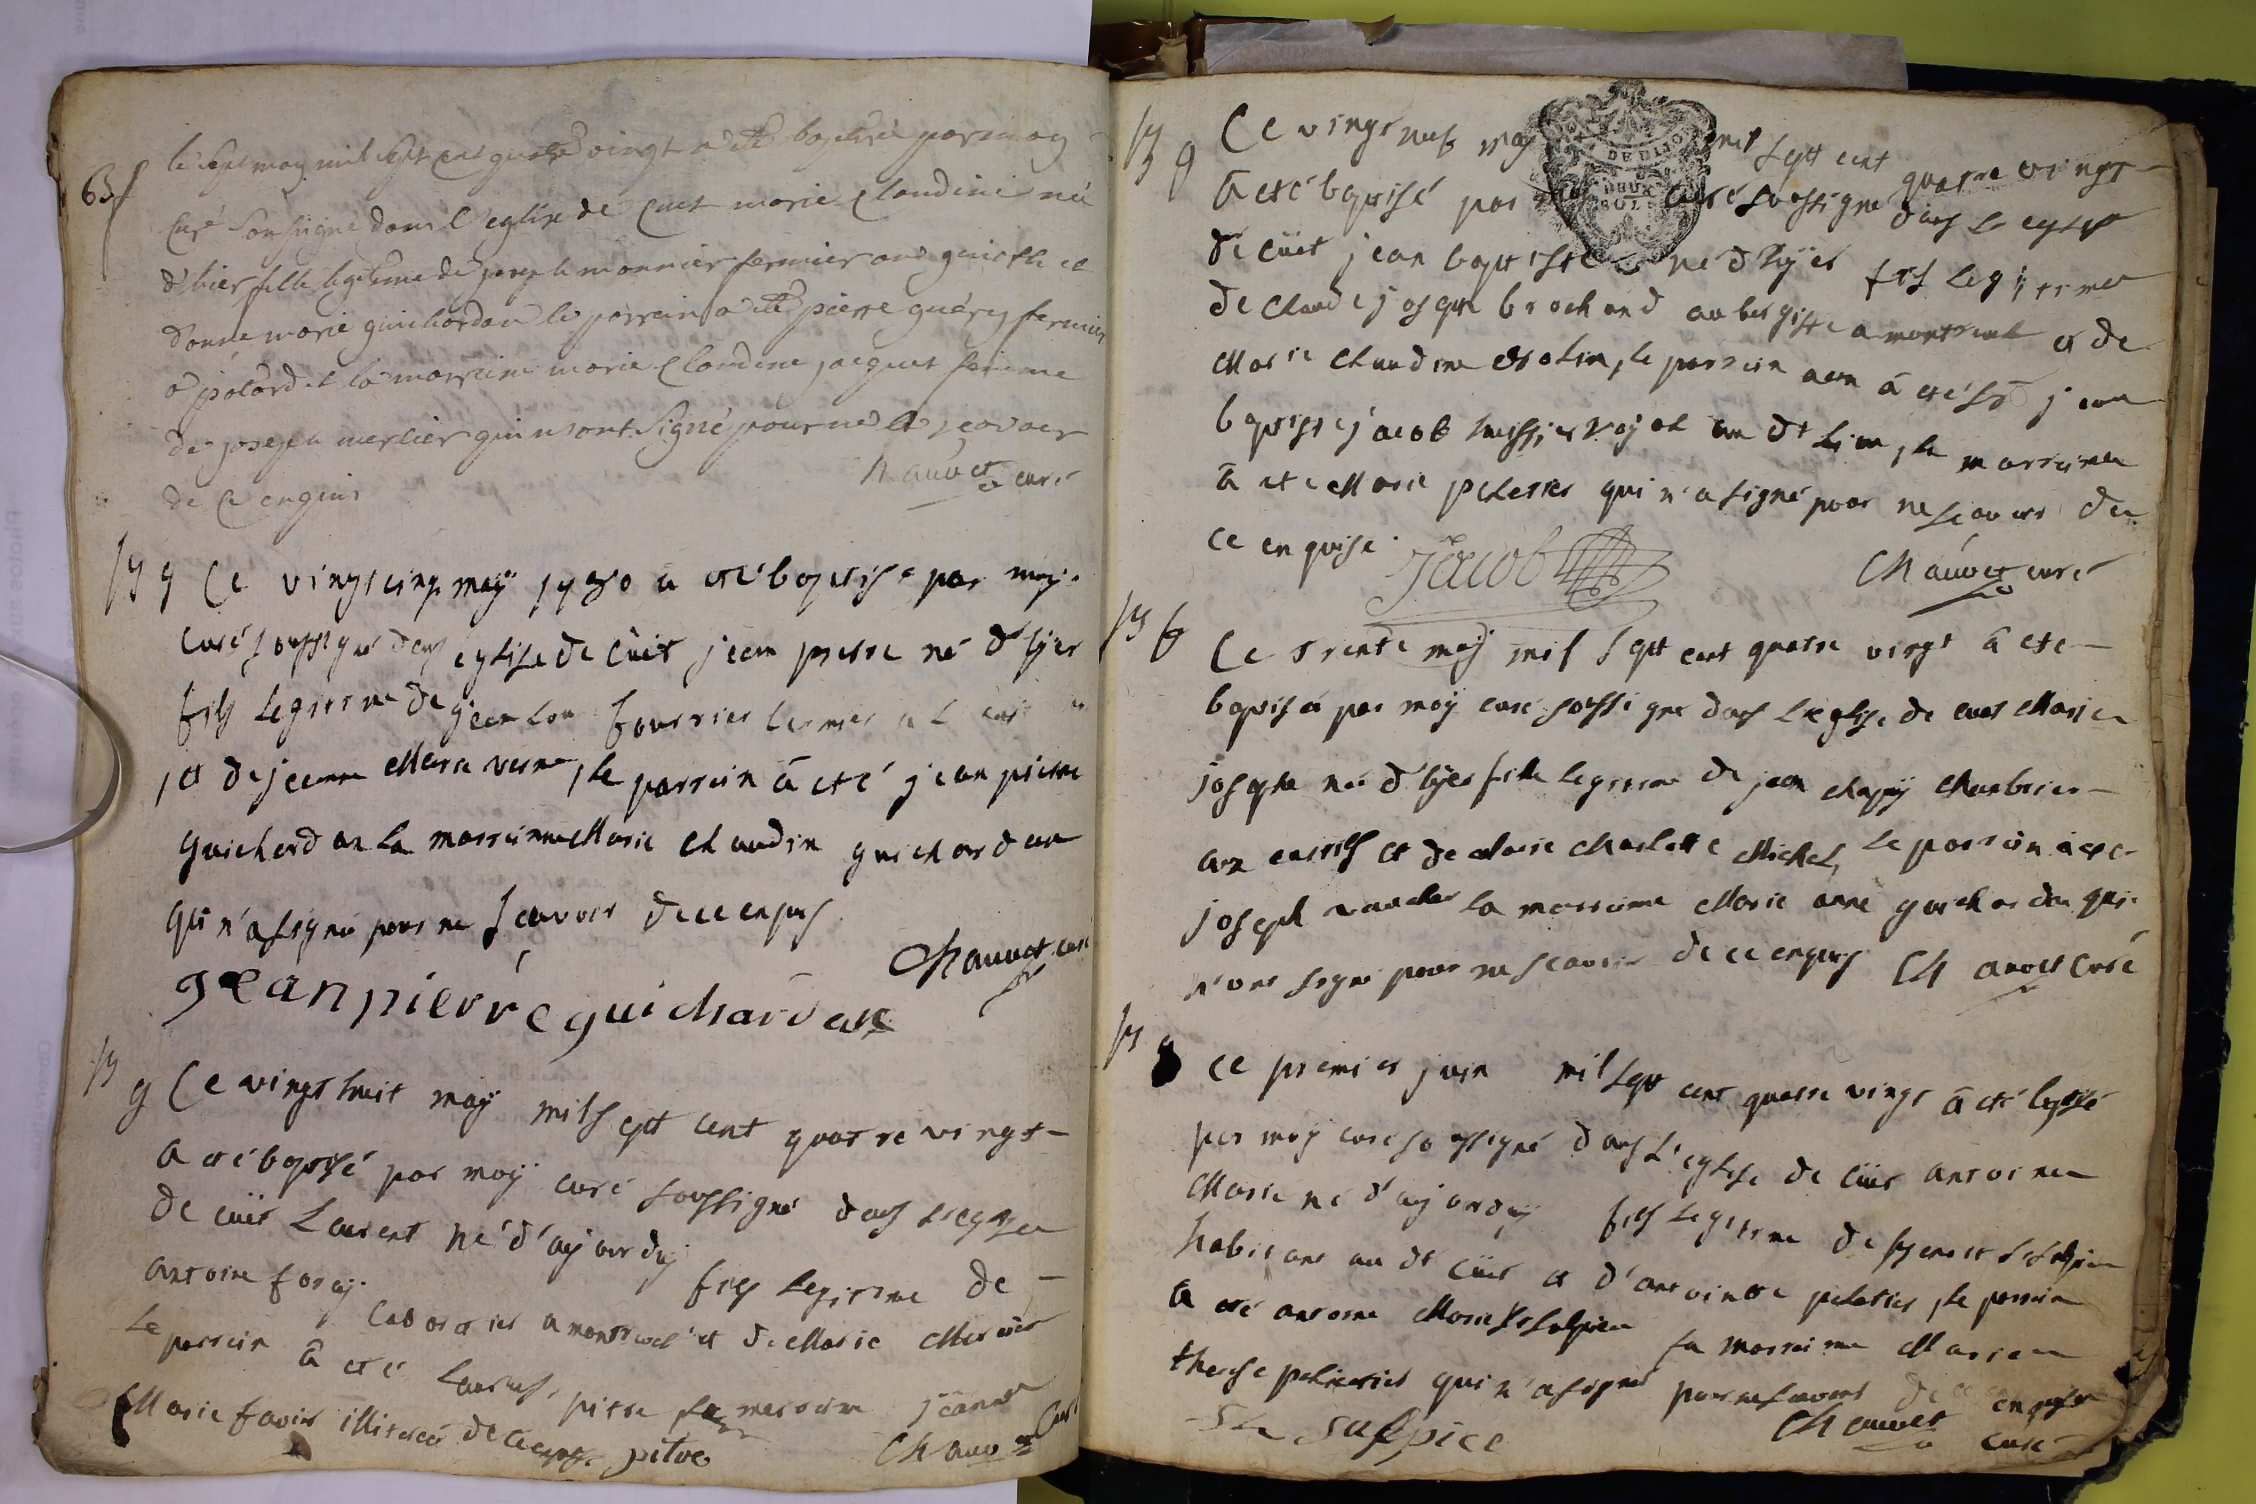 63 f
le sept may mil sept cent quatre vingt a été baptisé par moy
curé soussigné dans l'eglise de Cuet marie Claudine née
d'hier fille legitime de joseph monnier fermier aux et
d'anne marie guichardan le parrain a été pierre guéry fermier
a polard et la marraine marie Claudine jacquet femme
de joseph mercier qui n'ont signé pour ne le scavoir
de ce enquis
Chauvet curé
13 g Ce vingt cinq may 1780 a eté baptisé par moy
curé soussigné dans eglise de Cüet jean pierre né d'hÿer
fils legitime de jean lou fourrier fermier a
et de jeanne Marie verne, le parrein â eté jean pierre
guichardan la marrainne Marie Claudin guichardan
qui n'a signé pour ne scavoir de ce enquis
Chauvet curé
jean pierre guichardan
13 g Ce vingt huit maÿ mil sept cent quatre vingt
a eté baptisé par moÿ curé soussigné dans l'eglise
de cüet Laurent né d'aujourduÿ fils legitime de
antoine foraÿ Laboureur a montreal et de Marie Mercier
le parrein â eté Laurent pitre la marreine jeanne
Marie favier illiterée de ce enquise pitre Chauvet Curé
13 g Ce vingt neuf maÿ mil sept cent quatre vingt
DE DIJON
DEUX
SOLS
â eté baptisé par moÿ curé soussigné dans l'eglise
de cüet jean baptiste né d'hÿer fils legitime
de Claude joseph brochand aubergiste a montreal et de
Marie Claudine, le parrein â eté sr jean
baptiste jacob huissier royal au dt lieu, la marreine
â eté Marie peletier qui n'a signé pour ne scavoir de
ce enquise.
Jacob
Chauvet curé
13 f Ce trente maÿ mil sept cent quatre vingt â eté
baptisé par moÿ curé soussigné dans l'eglise de cuet Marie
josephe née d'hÿer fille legitime de jean chapuÿ charbonier
aux et de Marie charlotte Michel, le parrein a eté
joseph la marreine Marie anne guichardan qui
n'ont signé pour ne scavoir de ce enquis Chauvet Curé
13 g Ce premier juin mil sept cent quatre vingt â eté baptisé
par moÿ curé soussigné dans l'eglise de cüet antoine
Marie né d'aujourduÿ fils legitime de st sulpice
habitant au dt cüet et d'antoinette peletier, le parrein
â eté antoine Marie st sulpice la marreine Marie
therese peletier qui n'a signé pour ne scavoir de ce enquise
St Sulpice
Chauvet curé